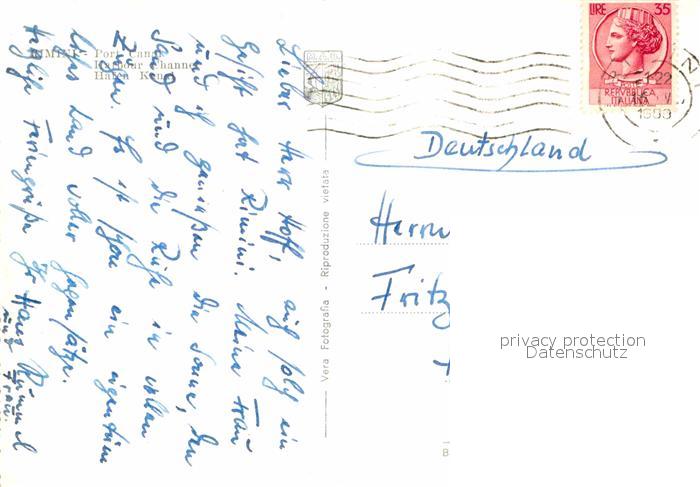 RIMINI - Port Canal
Harbour Channel
Hafen Kanal
Lieber Herr Hoff, auf solch ein
Gesicht hat Rimini. Meine Frau
und genießen die Sonne, den
Sand und die Ruhe in vollen
Zügen. Es ist schon ein
Land voller Gegensätze.
Herzliche Feriengrüße Ihr Hans
und Frau.
Vera Fotografia - Riproduzione vietata
LIRE 35
REPVBBLICA
ITALIANA
Deutschland
Herrn
Fritz
privacy protection
Datenschutz